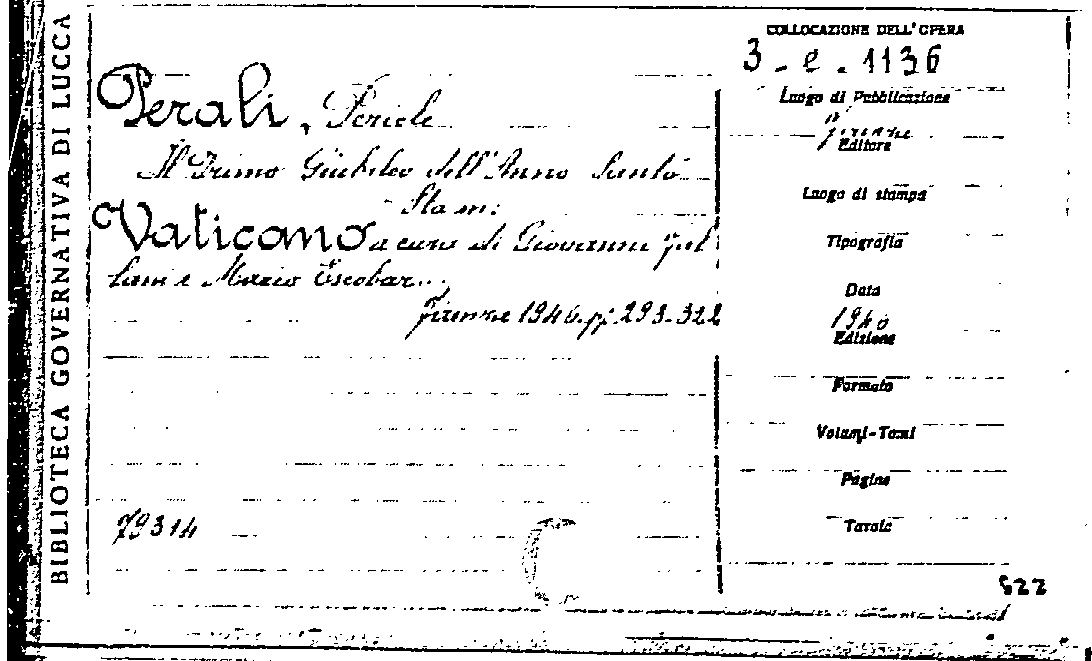 BIBLIOTECA GOVERNATIVA DI LUCCA
COLLOCAZIONE DELL'OPERA
3 - e - 1136
Perali, Pericle
Il Primo Giubileo dell'Anno Santo
Sta in:
Vaticano a cura di Giovanni Fal
lani e Mario Escobar..
Firenze 1946. pp. 293-322
Luogo di Pubblicazione
Firenze
Editore
Luogo di stampa
Tipografia
Data
1946
Edizione
Formato
Volumi-Tomi
Pagine
Tavole
79314
522